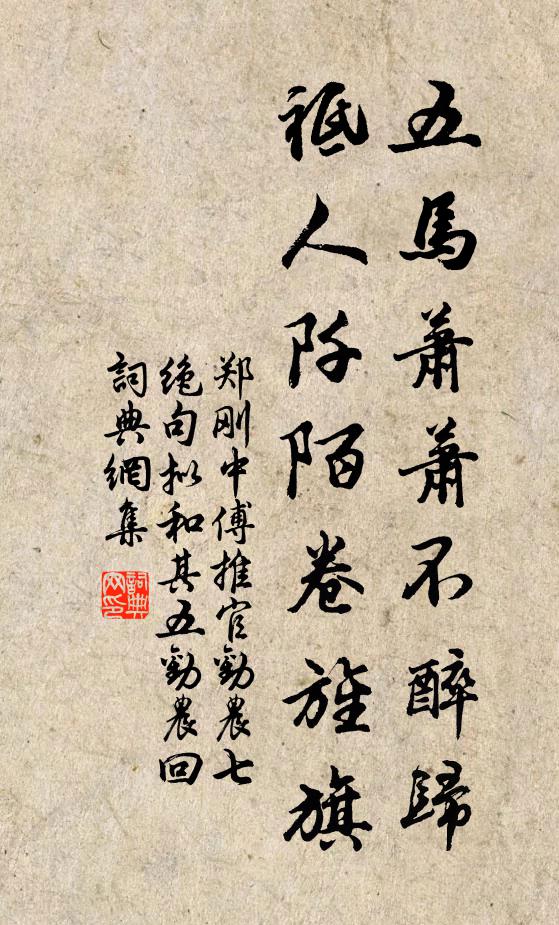 五馬蕭蕭不醉歸
祗人阡陌卷旌旗
郑刚中傅推官勸農七
绝句拟和其五勸農回
詞典網集
詞典
网印